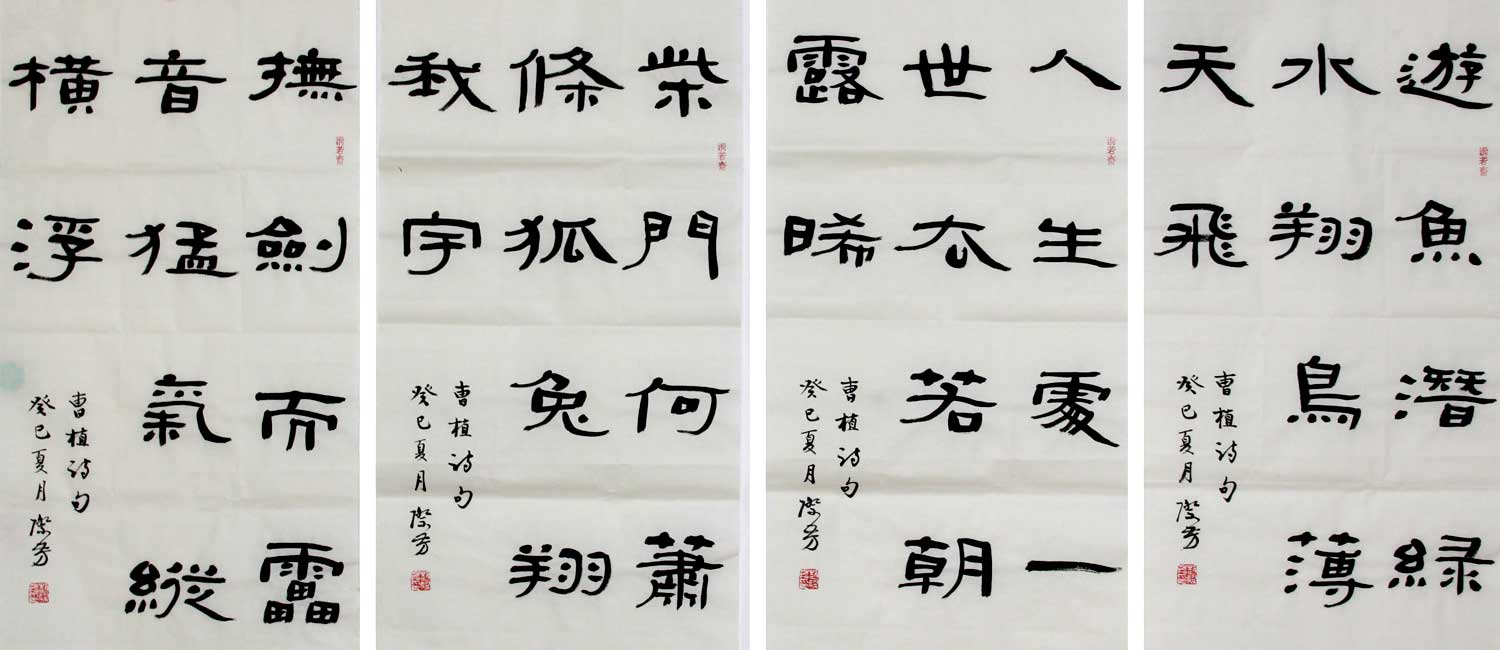 遊魚潛緑
水翔鳥薄
天飛
曹植诗句
癸巳夏月際芳
人生處一
世厺若朝
露晞
曹植诗句
癸巳夏月際芳
柴門何蕭
條狐兔翔
我宇
曹植诗句
癸巳夏月際芳
撫劍而靁
音猛氣縱
橫浮
曹植诗句
癸巳夏月際芳